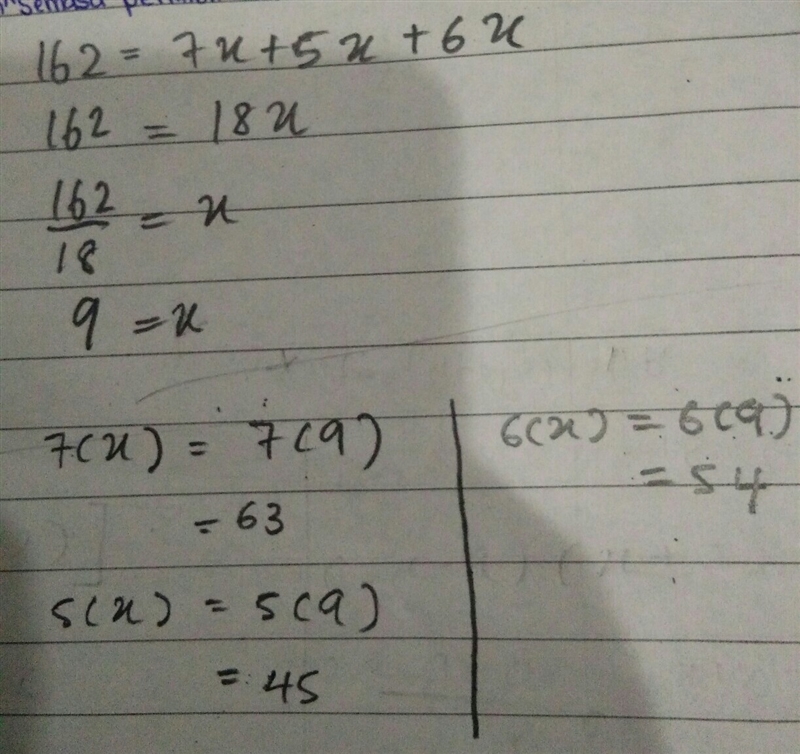 162 = 7x + 5x + 6x
162 = 18x
162/18 = x
9 = x
7(x) = 7(9)
= 63
5(x) = 5(9)
= 45
6(x) = 6(9)
= 54